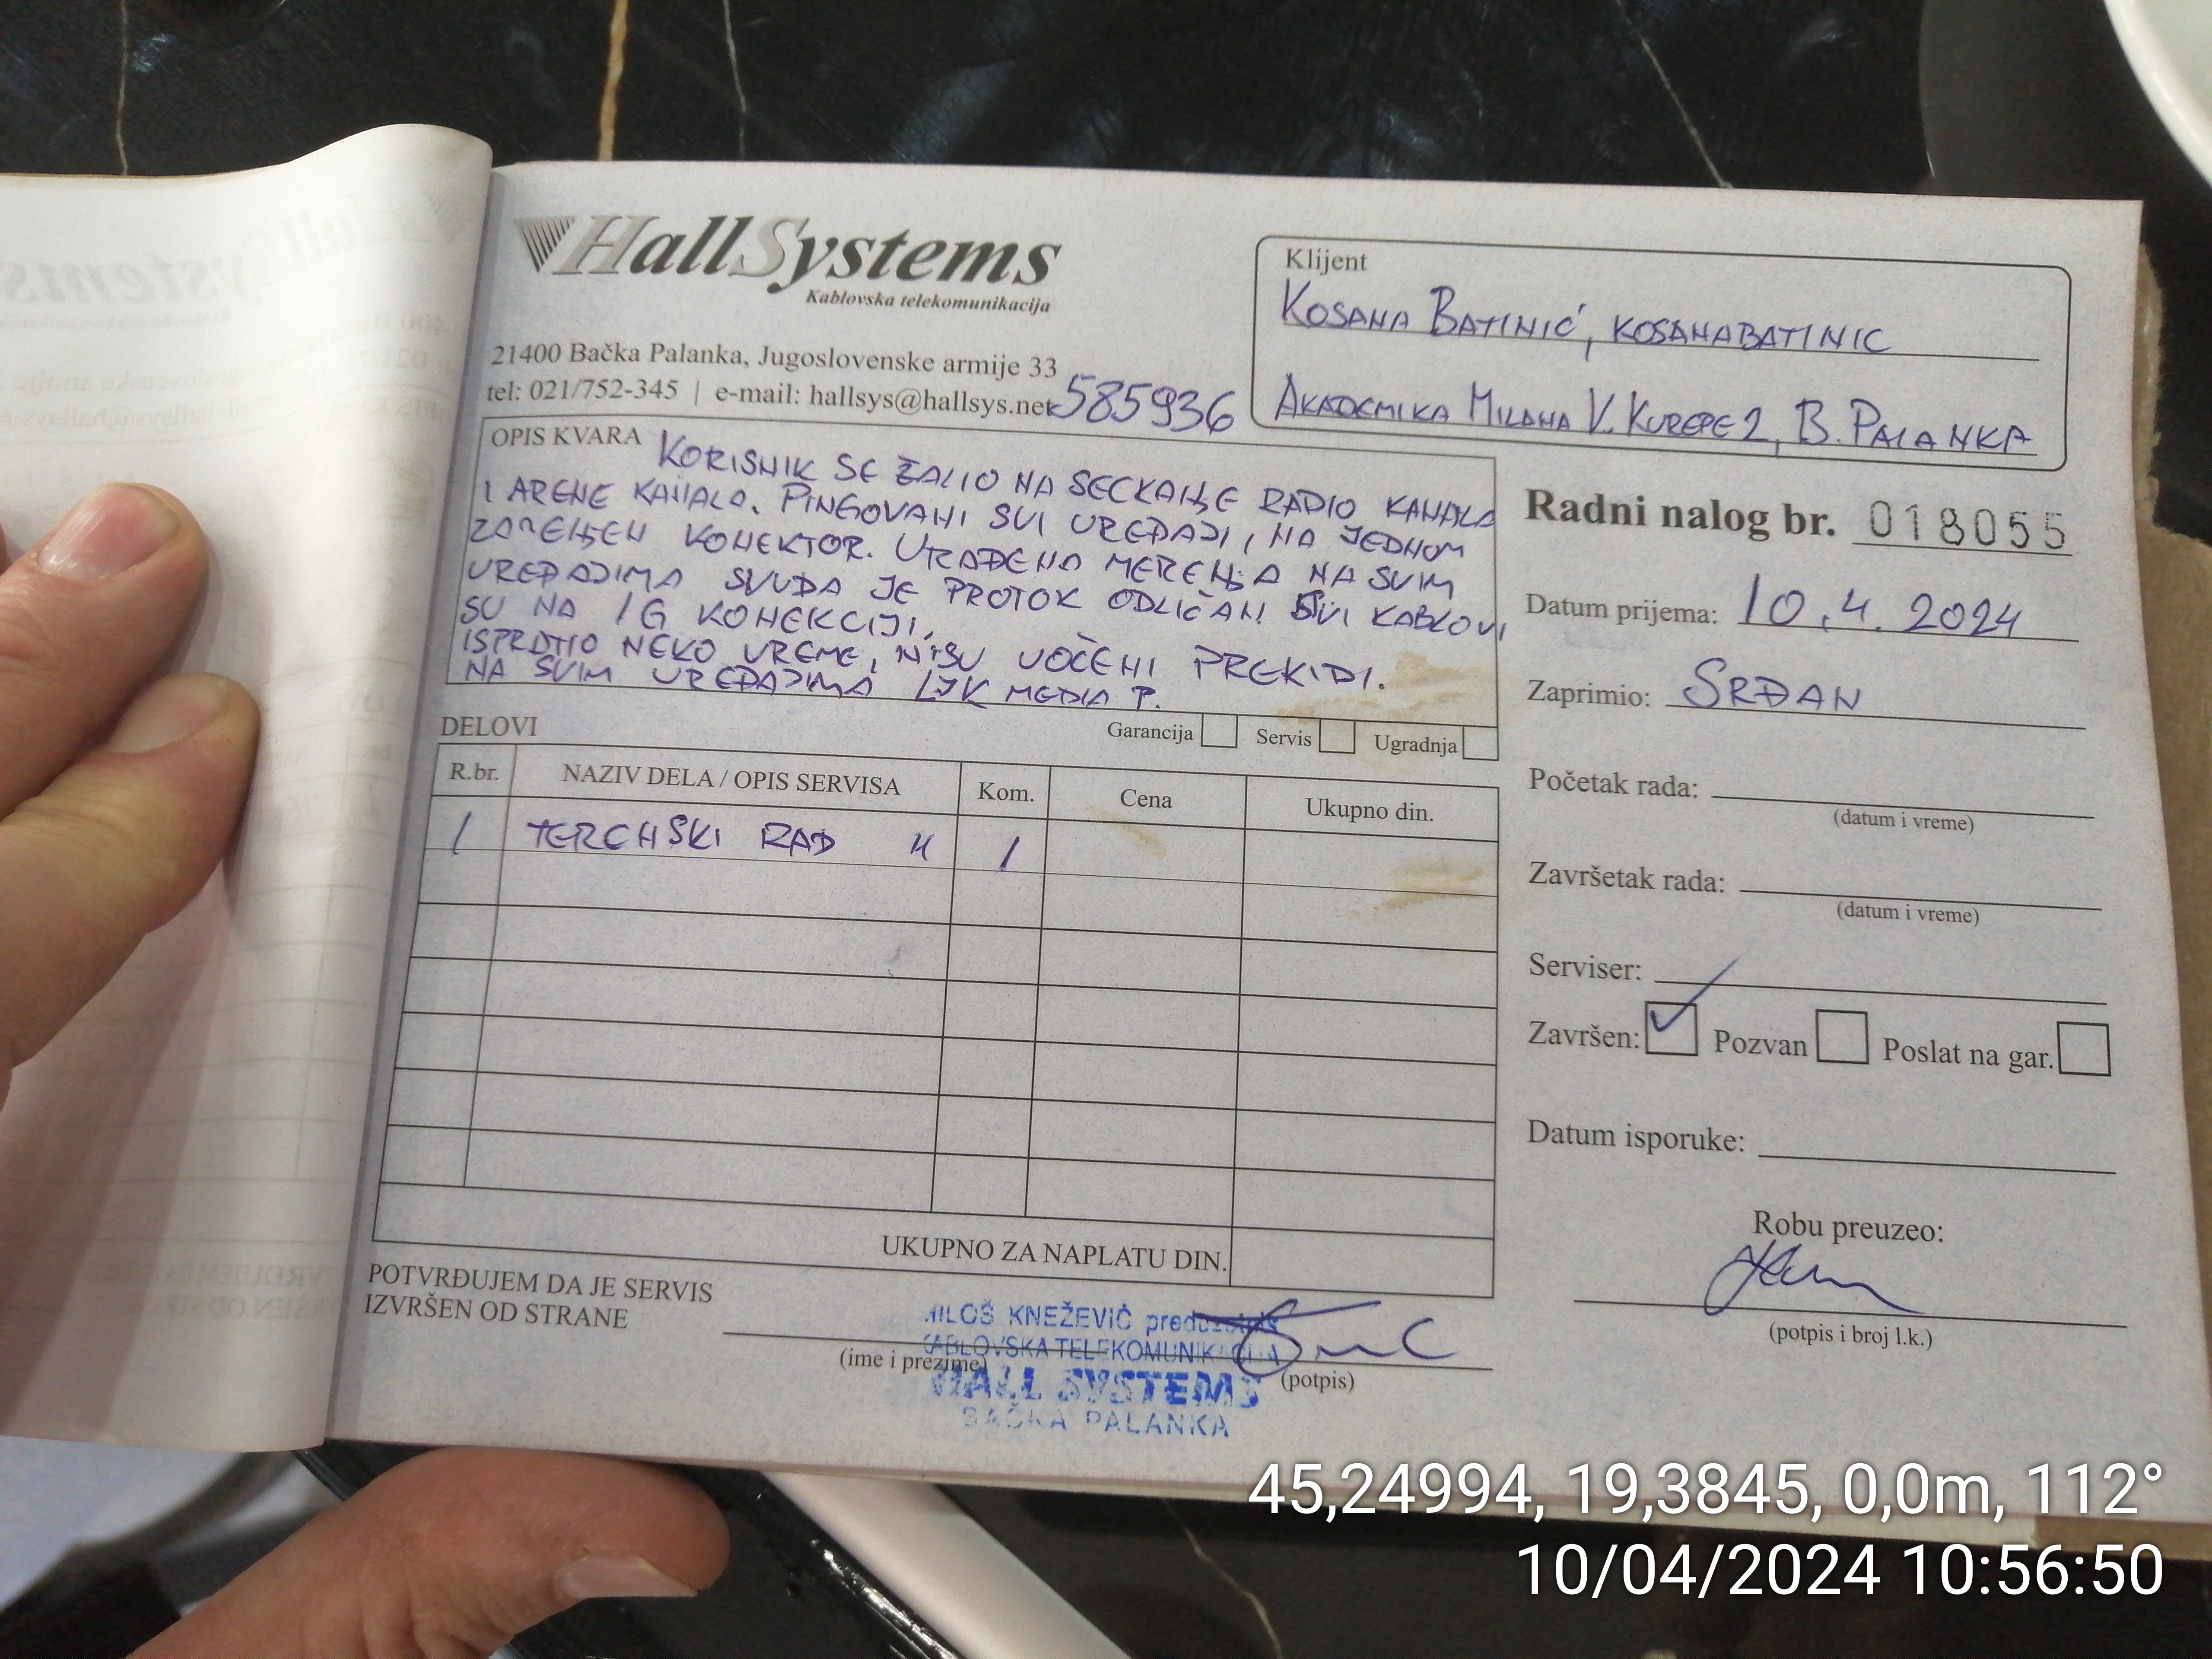 HallSystems
Kablovska telekomunikacija
21400 Bačka Palanka, Jugoslovenske armije 33
tel: 021/752-345 | e-mail: hallsys@hallsys.net
585936
Klijent
KOSANA BATINIĆ, KOSANABATINIC
AKADEMIKA MILANA V. KUREPE 2, B. PALANKA
OPIS KVARA
KORISNIK SE ŽALIO NA SECKANJE RADIO KANALA
I ARENE KANALA. PINGOVANI SVI UREĐAJI, NA JEDNOM
ZAMENJEN KONEKTOR. URAĐENA MERENJA NA SVIM
UREĐAJIMA SVUDA JE PROTOK ODLIČAN! SVI KABLOVI
SU NA 1G KONEKCIJI.
ISPRATIO NEKO VREME, NISU UOČENI PREKIDI.
NA SVIM UREĐAJIMA MEDIA
Garancija Servis Ugradnja
DELOVI
R.br. NAZIV DELA / OPIS SERVISA Kom. Cena Ukupno din.
1 TERENSKI RAD 1
UKUPNO ZA NAPLATU DIN.
Radni nalog br. 018055
Datum prijema: 10.4.2024
Zaprimio: SRĐAN
Početak rada:
(datum i vreme)
Završetak rada:
(datum i vreme)
Serviser:
Završen: Pozvan Poslat na gar.
Datum isporuke:
Robu preuzeo:
(potpis i broj l.k.)
POTVRĐUJEM DA JE SERVIS
IZVRŠEN OD STRANE
(ime i prezime)
(potpis)
MILOŠ KNEŽEVIĆ preduzetnik
KABLOVSKA TELEKOMUNIKACIJA
HALL SYSTEMS
BAČKA PALANKA
45,24994, 19,3845, 0,0m, 112°
10/04/2024 10:56:50